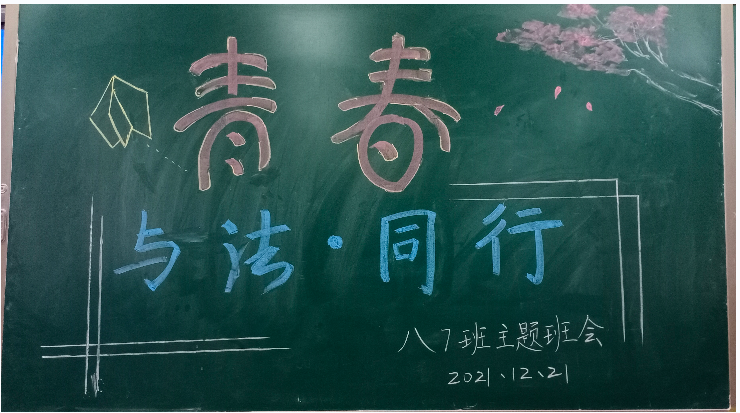 青春
与法·同行
八7班主题班会
2021、12、21